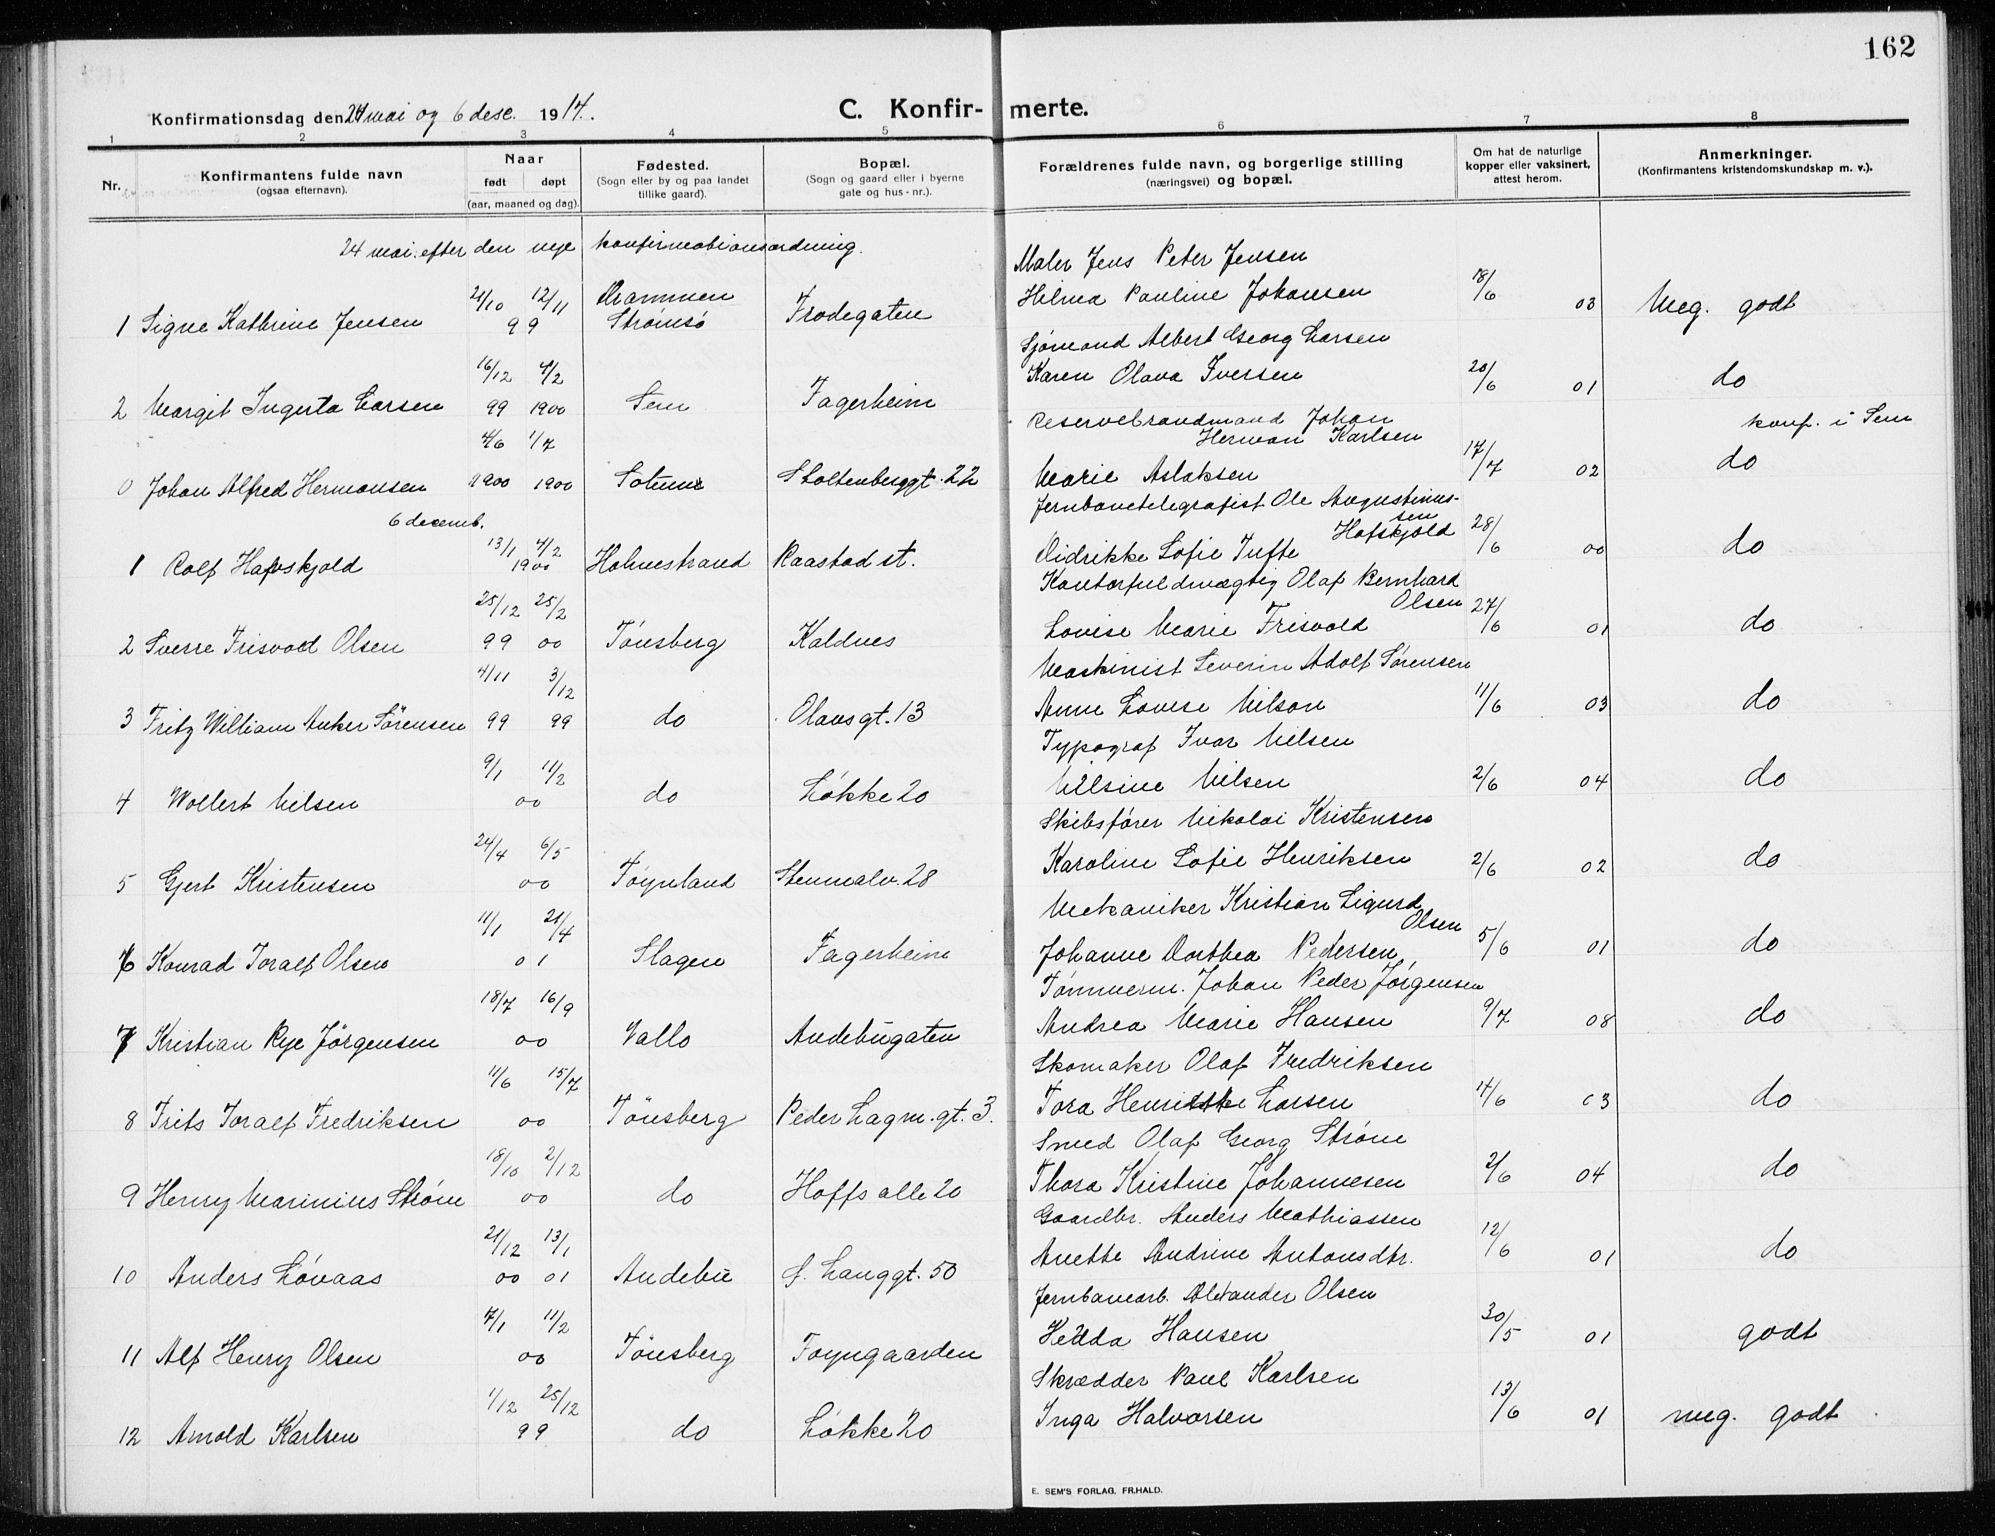 162
Konfirmationsdag den 24 mai og 6 desc. 1914. C. Konfir- merte.
1 2 3 4 5 6 7 8
Nr. Konfirmantens fulde navn (ogsaa efternavn). Naar født døpt (aar, maaned og dag). Fødested. (Sogn eller by og paa landet tillike gaard). Bopæl. (Sogn og gaard eller i byerne gate og hus-nr.). Forældrenes fulde navn, og borgerlige stilling (næringsvei) og bopæl. Om hat de naturlige kopper eller vaksinert, attest herom. Anmerkninger. (Konfirmantens kristendomskundskap m. v.).
24 mai. efter den nye konfirmationsordning.
Maler Jens Peter Jensen
21/10 12/11 Drammen Hilma Pauline Johansen 18/6
1 Signe Kathrine Jensen 99 Strømsö Frodegaten 03 Meg. godt
Sjömand Albert Georg Larsen
16/12 4/2 Karen Olava Iversen 20/6
2 Margit Ingerta Larsen 99 1900 Sem Fagerheim 01 do
Reservebrandmand Johan konf. i Sem
4/6 1/7 Herman Karlsen
0 Johan Alfred Hermansen 1900 1900 Stoltenberggt. 22 Marie Aslaksen 17/7 02 do
6 decemb. Jernbanetelegrafist Ole Augustinus-
sen
13/1 4/2 Hofskjold 28/6
1 Rolf Hafskjold 1900 Holmestrand Raastad st. Didrikke Sofie Tufte 00 do
Kontorfuldmægtig Olaf Bernhard
25/12 25/2 Olsen 27/6
2 Sverre Frisvold Olsen 99 00 Tönsberg Kaldnes Lovise Marie Frisvold 01 do
Maskinist Severin Adolf Sörensen
4/11 3/12
3 Fritz William Anker Sörensen 99 99 do Olavsgt. 13 Anne Lovise Nilson 11/6 03 do
Typograf Ivar Nilsen
9/1 11/2
4 Wollert Nilsen 00 do Lökke 20 Nilsine Nilsen 2/6 04 do
Skibsförer Nikolai Kristensen
24/4 6/5
5 Gjert Kristensen 00 Föynland Stenmalv. 28 Karoline Sofie Henriksen 2/6 02 do
Mekaniker Kristian Sigurd
11/1 21/4 Olsen
6 Konrad Toralf Olsen 01 Slagen Fagerheim Johanne Dorthea Pedersen 5/6 01 do
Tömmerm. Johan Peder Jörgensen
18/7 16/9
7 Kristian Rye Jörgensen 00 Vallö Andebugaten Andrea Marie Hansen 9/7 08 do
Skomaker Olaf Fredriksen
11/6 15/7
8 Frits Toralf Fredriksen 00 Tönsberg Peder Lagm. gt. 3. Tora Larsen 14/6 03 do
Smed Olaf Georg Ström
18/10 2/12
9 Henry Marinius Ström 00 do Hoffs alle 20 Thora Kristine Johannesen 2/6 04 do
Gaardbr. Anders Mathiassen
21/12 13/1
10 Anders Lövaas 00 01 Andebu S. Langgt. 50 Anette Andrine Antonsdtr. 12/6 01 do
Jernbanearb. Alexander Olsen
7/1 11/2
11 Alf Henry Olsen 00 Tönsberg Foyngaarden Hedda Hansen 30/5 01 godt
Skrædder Paul Karlsen
1/12 25/12
12 Arnold Karlsen 99 do Lökke 20 Inga Halvorsen 13/6 01 meg. godt
E. SEM'S FORLAG, FR.HALD.